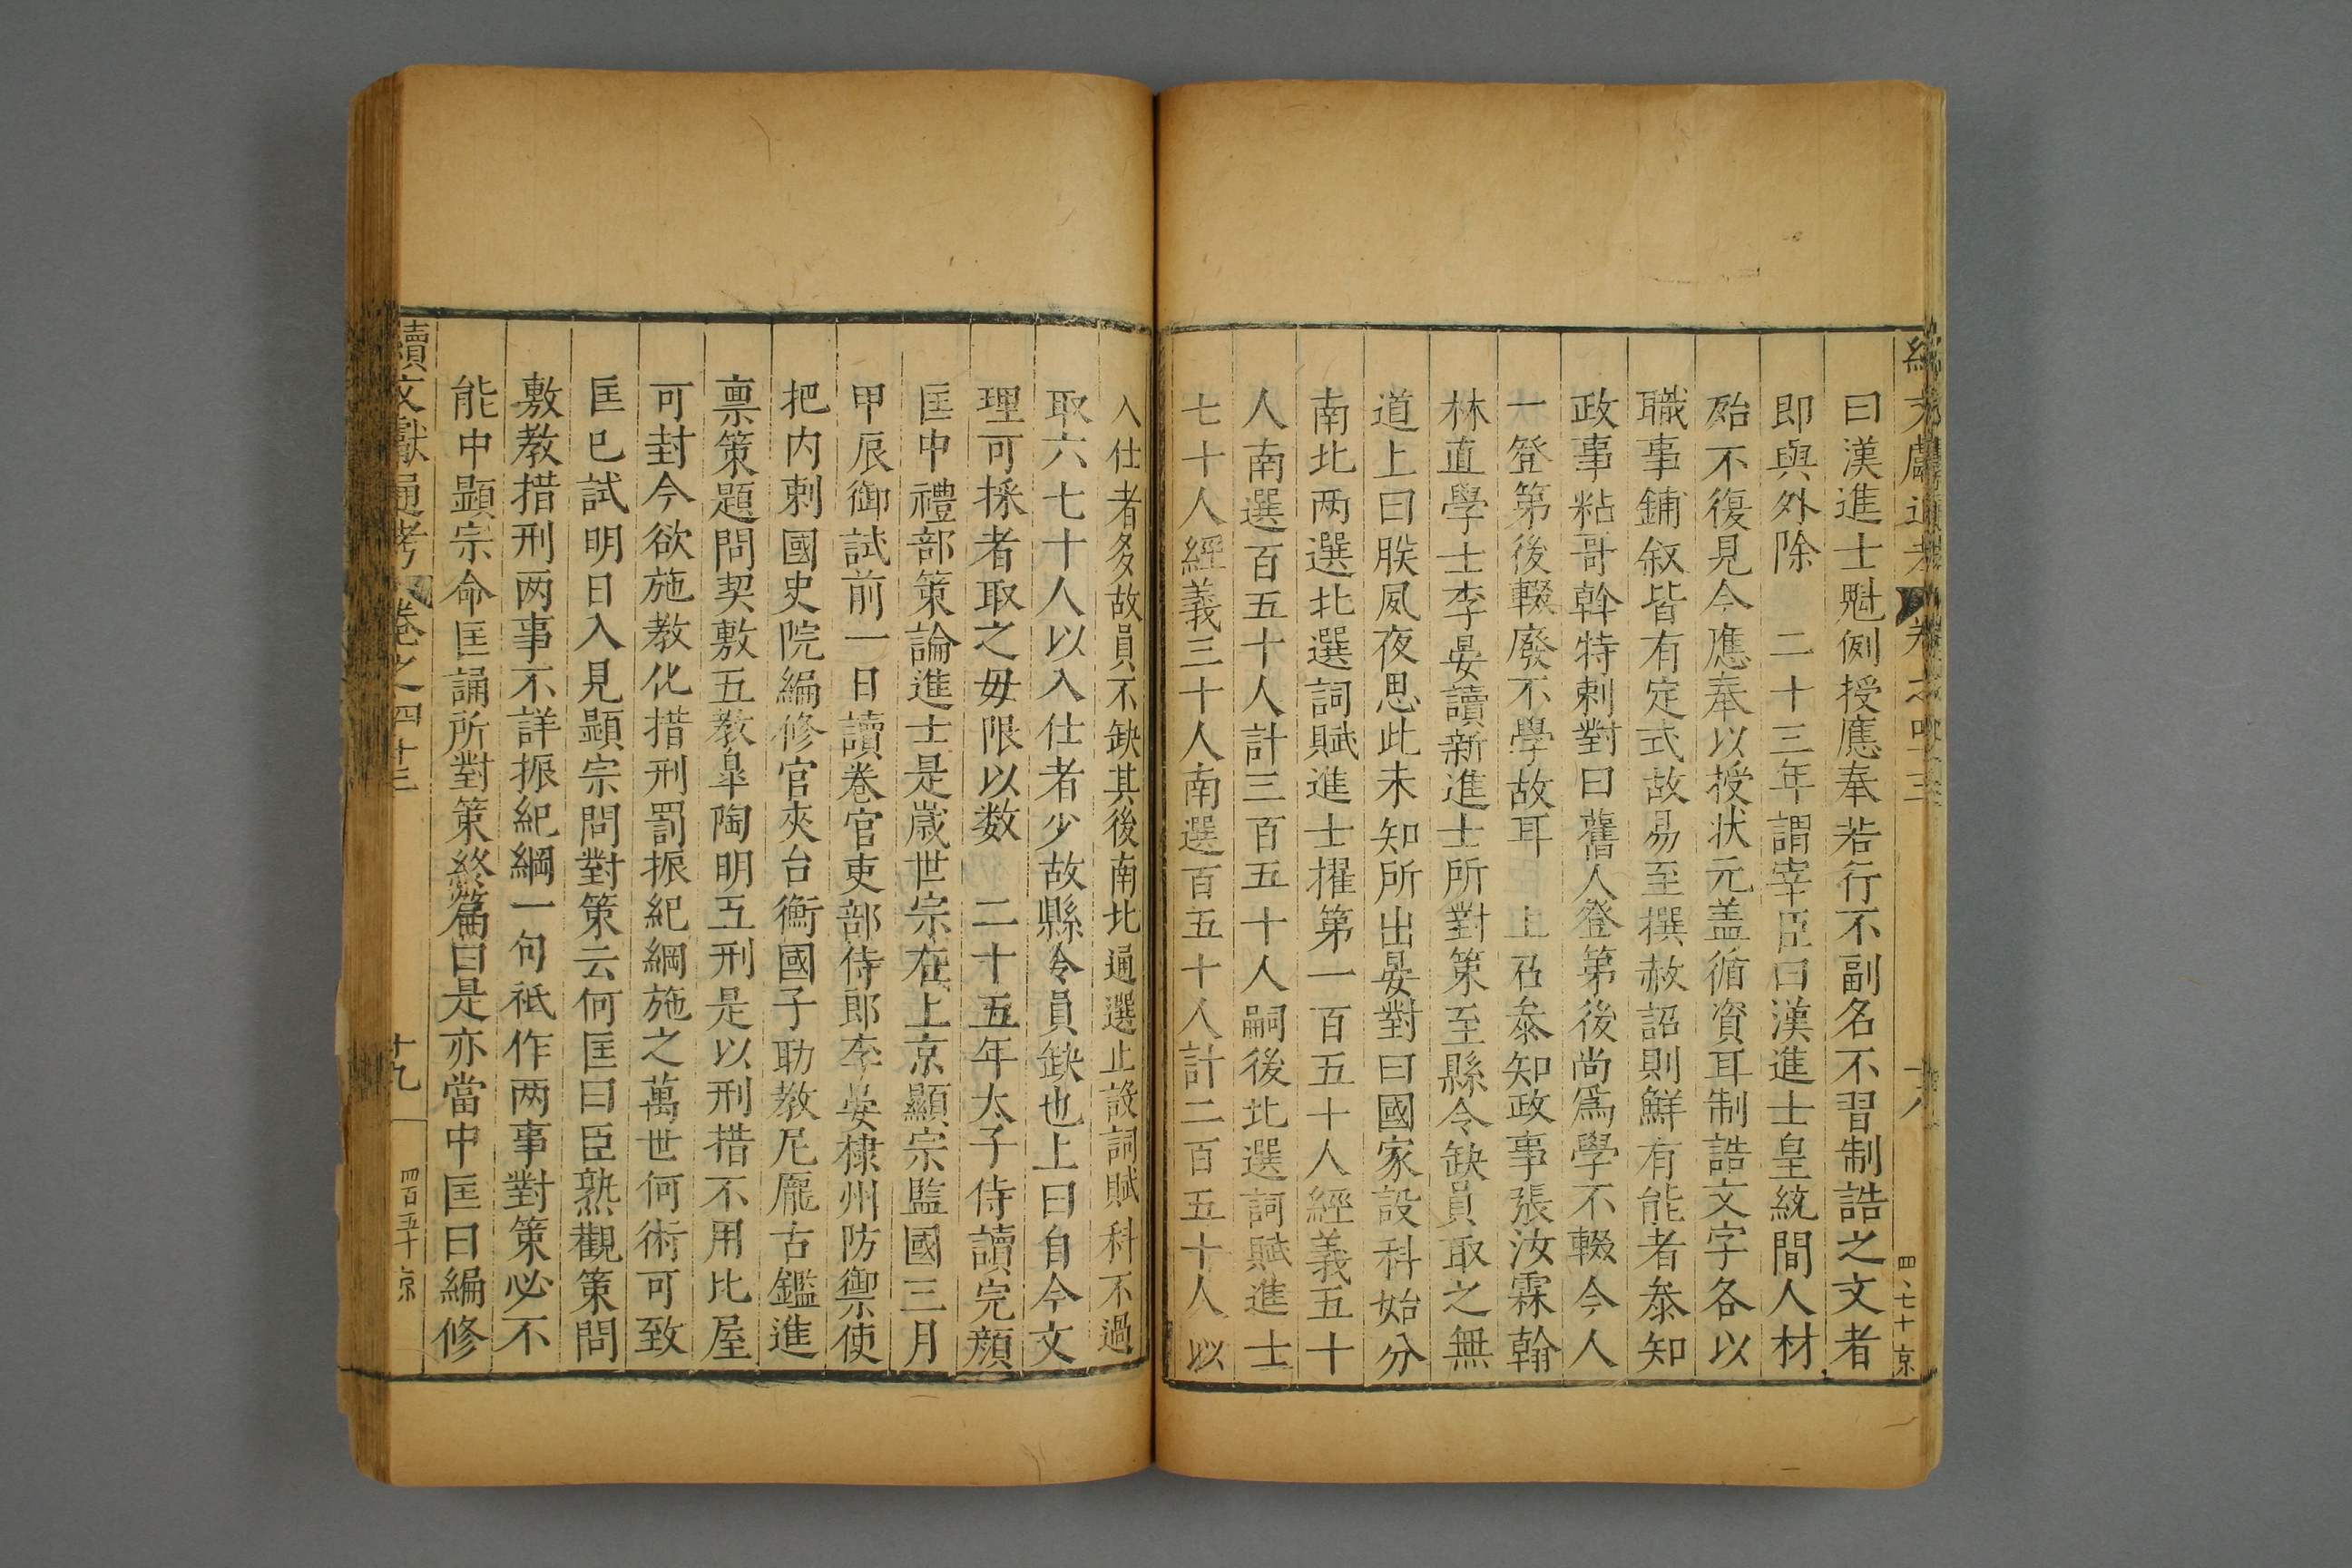 續文獻通考 卷之四十三 十八 四、七十 京
曰漢進士魁例授應奉若行不副名不習制誥之文者
即與外除 二十三年謂宰臣曰漢進士皇統間人材
殆不復見今應奉以授状元盖循資耳制誥文字各以
職事鋪叙皆有定式故易至撰赦詔則鮮有能者叅知
政事粘哥斡特剌對曰舊人登第後尚爲學不輟今人
一登第後輟廢不學故耳 上召叅知政事張汝霖翰
林直學士李晏讀新進士所對策至縣令缺員取之無
道上曰朕夙夜思此未知所出晏對曰國家設科始分
南北两選北選詞賦進士擢第一百五十人經義五十
人南選百五十人計三百五十人嗣後北選詞賦進士
七十人經義三十人南選百五十人計二百五十人以
入仕者多故員不缺其後南北通選止設詞賦科不過
取六七十人以入仕者少故縣令員缺也上曰自今文
理可採者取之毋限以数 二十五年太子侍讀完顔
匡中禮部策論進士是嵗世宗在上京顯宗監國三月
甲辰御試前一日讀卷官吏部侍郎李晏棣州防禦使
把内剌國史院編修官夾谷衡國子助教尼龐古鑑進
禀策題問契敷五教臯陶明五刑是以刑措不用比屋
可封今欲施教化措刑罰振紀綱施之萬世何術可致
匡已試明日入見顯宗問對策云何匡曰臣熟觀策問
敷教措刑两事不詳振紀綱一句祇作两事對策必不
能中顯宗命匡誦所對策終篇曰是亦當中匡曰編修
續文獻通考 卷之四十三 十九 四百五十 京